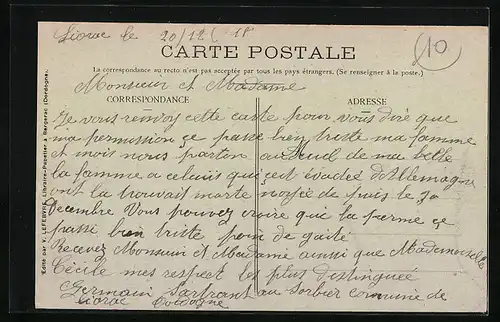 Liorac le 20/12/18
(10
CARTE POSTALE
La correspondance au recto n'est pas acceptée par tous les pays étrangers. (Se renseigner à la poste.)
Monsieur et Madame
CORRESPONDANCE
ADRESSE
Je vous renvoy cette carte pour vous dire que
ma permission çe passe bien triste ma famme
et mois nous parton au deuil de ma belle
la famme a celuis qui est évadés d'Allemagne
ont la trouvait morte noyée de puis le 30
Decembre Vous pouvez croire que la perme çe
passe bien triste poin de gaité
Recevez Monsieur et Madame ainsi que Mademoiselle
Cécile mes respect les plus distinguée
Germain au Sorbier commune de
Liorac Dordogne
Édité par V. LEFEBVRE, Libraire-Papetier à Bergerac (Dordogne).